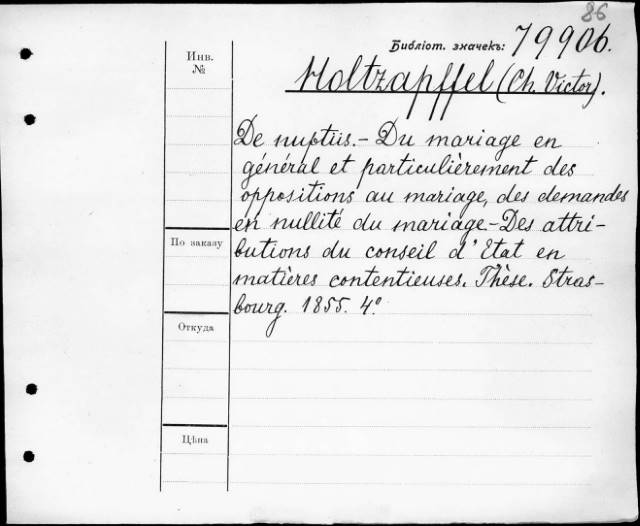 86
Библіот. значекъ: 79906.
Инв.
№
Holtzapffel (Ch. Victor).
De nuptiis. - Du mariage en
général et particulièrement des
oppositions au mariage, des demandes
en nullité du mariage. - Des attri-
По заказу
butions du conseil d'Etat en
matières contentieuses. Thèse. Stras-
bourg. 1855. 4°
Откуда
Цѣна